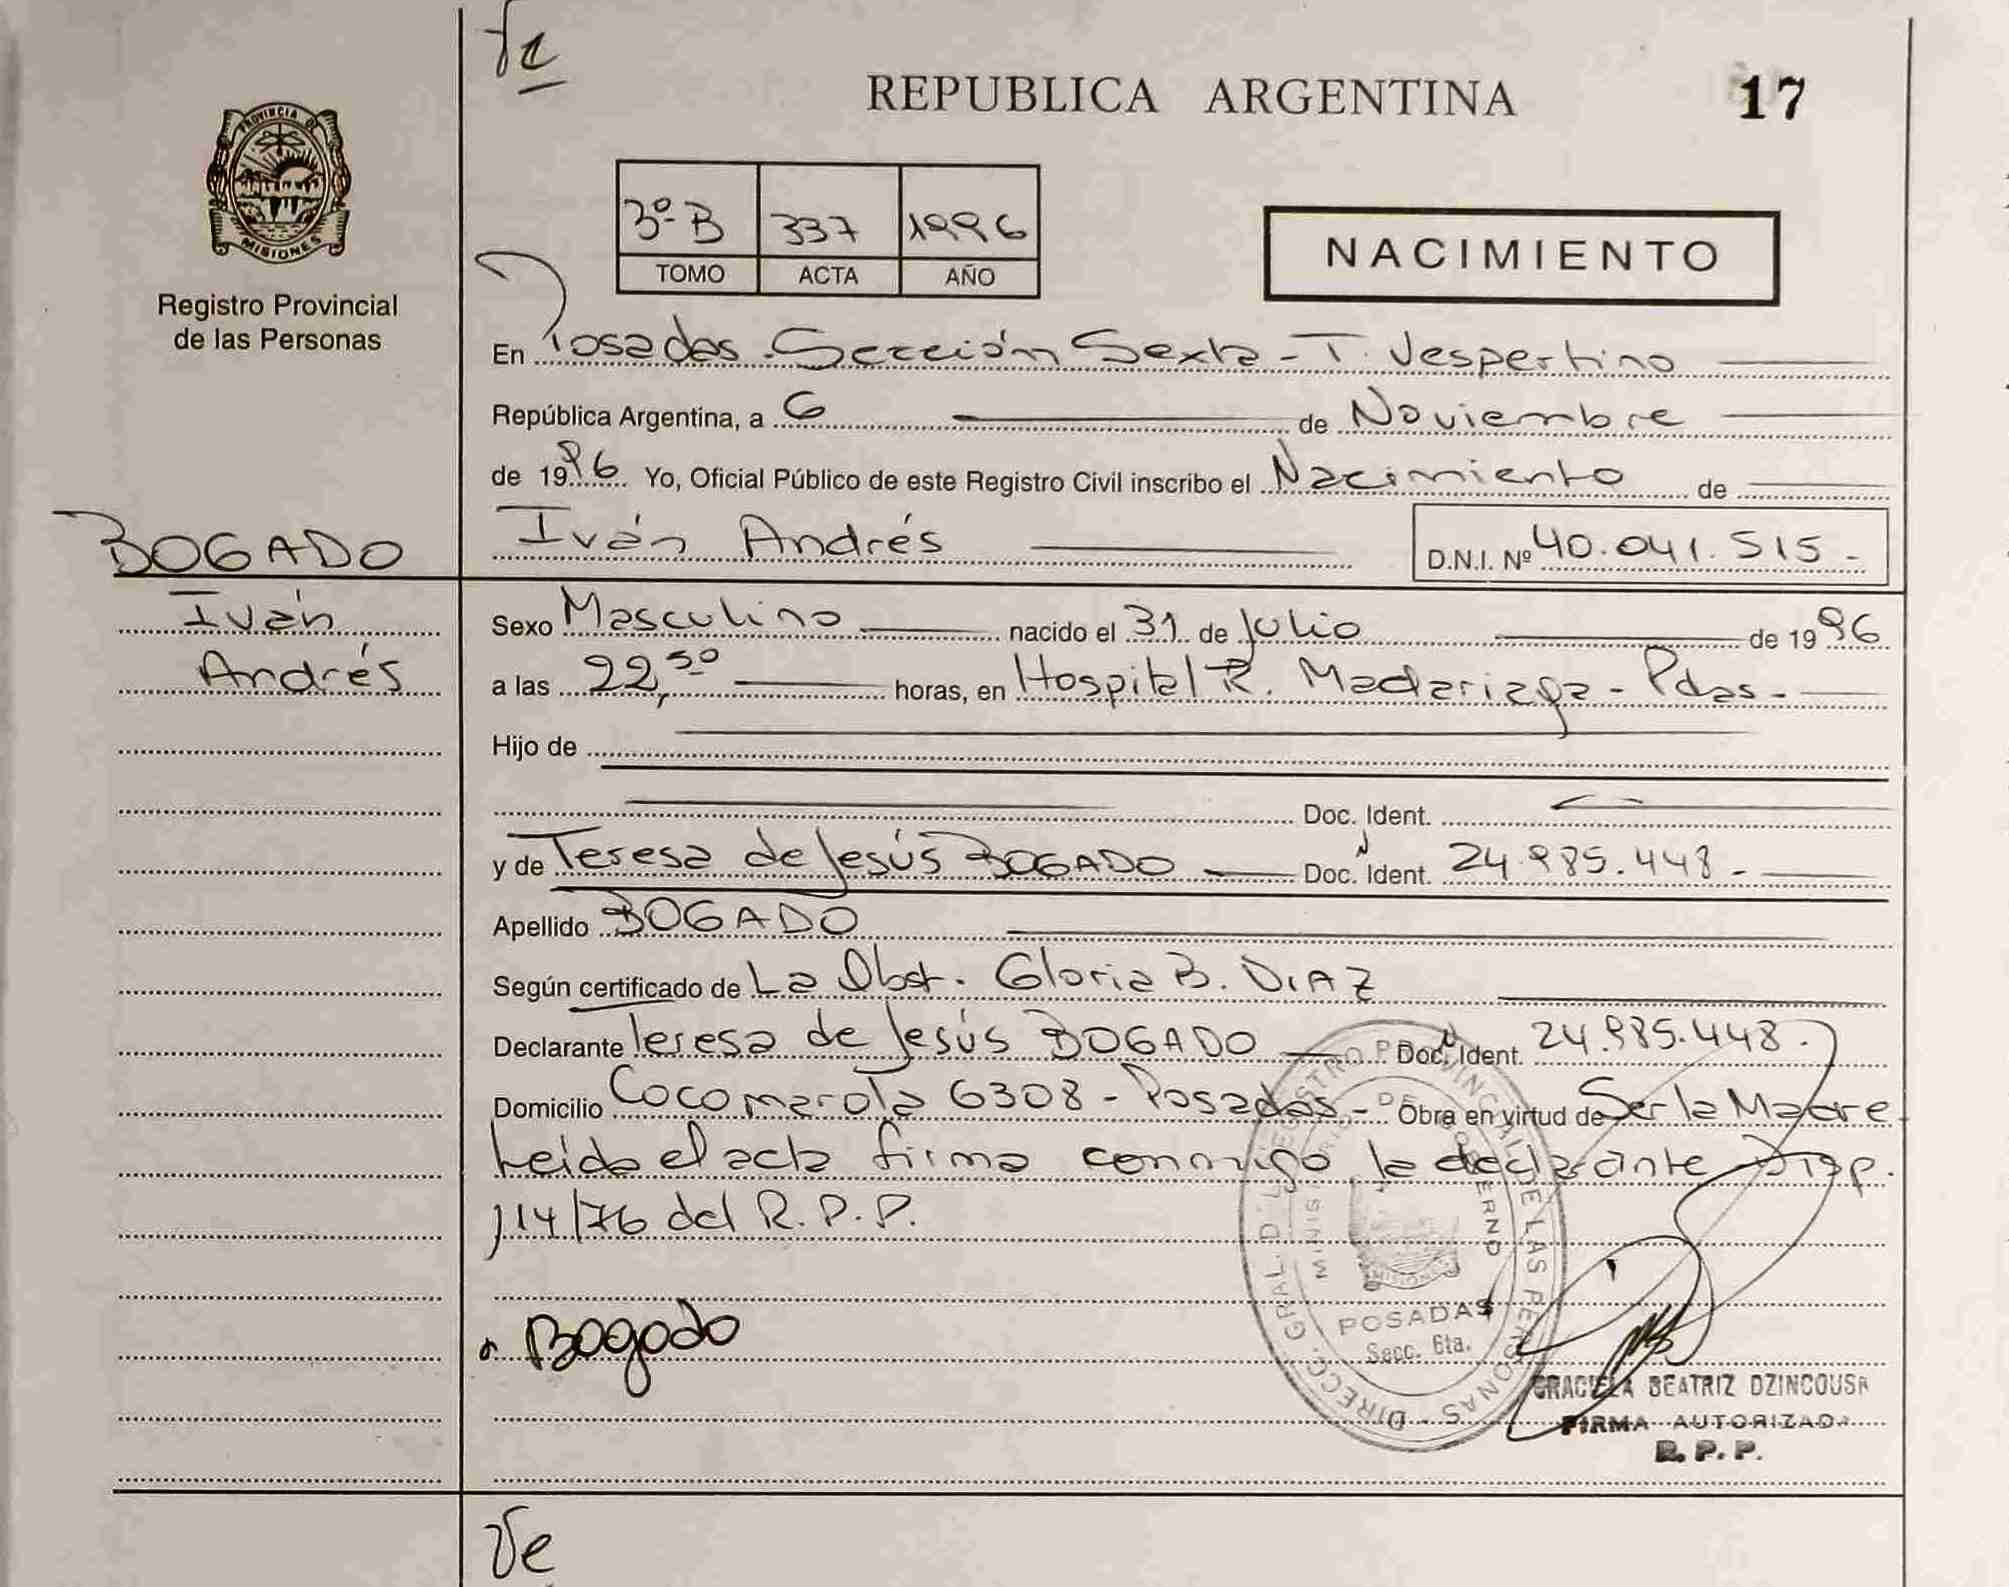 Ve
REPUBLICA ARGENTINA 17
PROVINCIA DE
MISIONES
Registro Provincial
de las Personas
3º B 337 1996
TOMO ACTA AÑO
NACIMIENTO
En Posadas Sección Sexta - T. Vespertino
República Argentina, a 6 de Noviembre
de 1996 Yo, Oficial Público de este Registro Civil inscribo el Nacimiento de
BOGADO
Iván Andrés D.N.I. Nº 40.041.515.-
Iván
Andrés
Sexo Masculino nacido el 31 de Julio de 1996
a las 22,50 horas, en Hospital R. Madariaga - Pdas -
Hijo de
Doc. Ident.
y de Teresa de Jesús BOGADO Doc. Ident. 24.985.448.-
Apellido BOGADO
Según certificado de La Obst. Gloria B. DIAZ
Declarante Teresa de Jesús BOGADO Doc. Ident. 24.985.448.
Domicilio Cocomarola 6308 - Posadas - Obra en virtud de Ser la Madre
Leida el acta firma conmigo la declarante Disp.
114/76 del R.P.P.
Bogado
MISIONES
POSADAS
Secc. 6ta.
GRACIELA BEATRIZ DZINCOUSA
FIRMA AUTORIZADA
R.P.P.
Ve